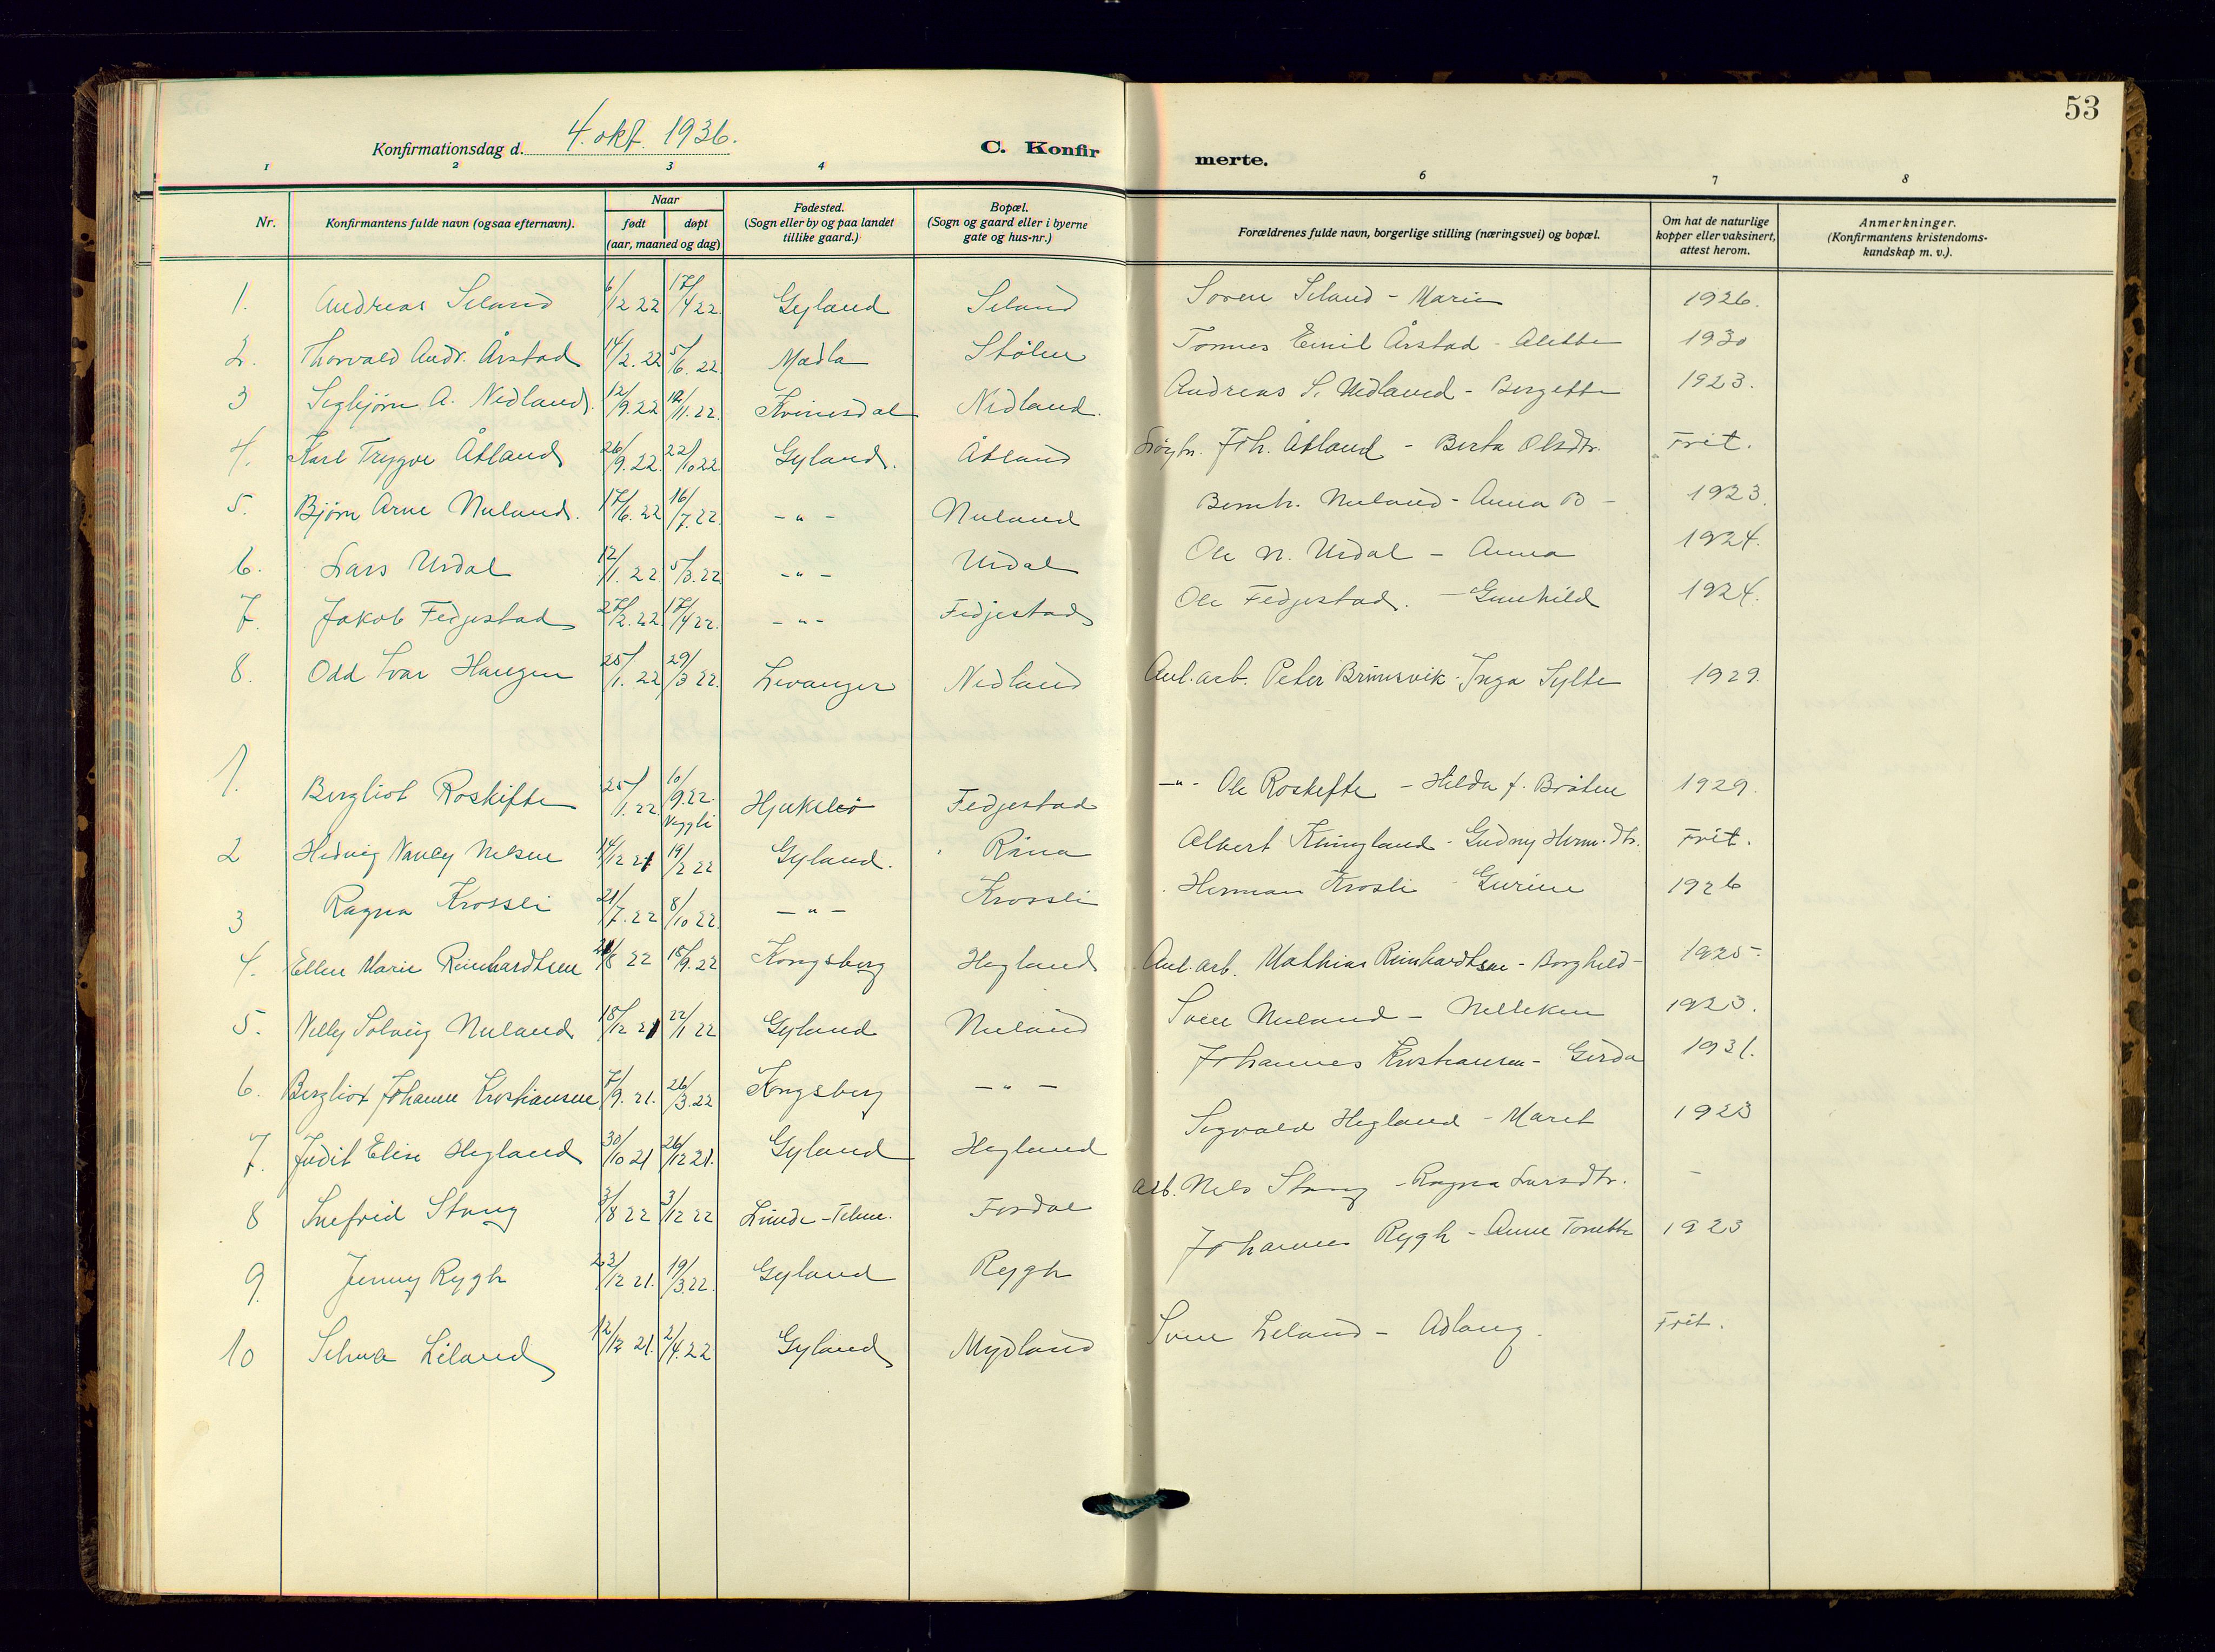 53
Konfirmationsdag d. 4. okt. 1936.
C. Konfir
merte.
1 2 3 4 6 7 8
Nr.
Konfirmantens fulde navn (ogsaa efternavn).
Naar
født døpt
(aar, maaned og dag)
Fødested.
(Sogn eller by og paa landet
tillike gaard.)
Bopæl.
(Sogn og gaard eller i byerne
gate og hus-nr.)
Forældrenes fulde navn, borgerlige stilling (næringsvei) og bopæl.
Om hat de naturlige
kopper eller vaksinert,
attest herom.
Anmerkninger.
(Konfirmantens kristendoms-
kundskap m. v.).
1. Andreas Seland 6/12 22 17/4 22. Gyland Seland Soren Seland - Marie 1926.
2. Thorvald Andr. Årstad 14/2. 22 5/6. 22. Madla Stølen Tomes Emil Årstad - Alette 1930
3 Segbjørn A. Nedland. 12/9. 22 12/11. 22. Kvinesdal Nedland. Andreas S. Nedland - Bergette 1923.
4. Karl Trygve Åtland 26/9. 22. 22/10 22 Gyland. Åtland Joh. Åtland - Berta Olsdtr. Frit.
5. Bjørn Arne Nuland. 17/6. 22 16/7. 22. - " - Nuland Bernh. Nuland - Anna B - 1923.
6. Lars Urdal 12/1. 22 5/3. 22 - " - Urdal Ole N. Urdal - Anna 1924.
7. Jakob Fedjestad 27/2. 22 17/4 22. - " - Fedjestad Ole Fedjestad. - Gunhild 1924.
8. Odd Ivar Haugen 25/1. 22 29/3 22. Levanger Nedland Anl. arb. Peter Brunsvik - Inga Sylte 1929.
1. Bergliot Roskifte 25/1. 22. 10/9. 22. Veggli Fedjestad - " - Ole Roskifte - Hilda f. Bråten 1929.
2 Hedvig Nancy Nelsen 14/12 21 19/2 22 Gyland. Råna Albert Klungland - Gudny Herm. dtr. Frit.
3 Ragna Krossli 21/7. 22 8/10 22. - " - Krossli Herman Krosli - Gurine 1926
4. Ellen Marie Reinhardtsen 21/8 22 15/9. 22 Kongsberg Hegland Anl. arb. Mathias Reinhardtsen - Borghild - 1925.
5. Nelly Solveig Nuland 18/12 21 22/1 22 Gyland Nuland Sven Nuland - Nelleken 1923.
6. Bergliot Johanne Kristiansen 7/9. 21. 26/3. 22 Kongsberg - " - Johannes Kristiansen - Gerda 1931.
7. Judit Elise Hegland 30/10 21 26/12 21. Gyland Hegland Segvald Hegland - Maret 1923
8 Snefrid Stang 3/8 22 3/12 22 Lunde - Telem. Fosdal arb. Nels Stang - Ragna Larsdtr. -
9. Jenny Rygh 23/12 21. 19/3. 22. Gyland Rygh Johannes Rygh - Anne Tonette 1923
10 Selma Leland 12/12 21. 2/4. 22 Gyland Mydland Sven Leland - Adlaug. Frit.